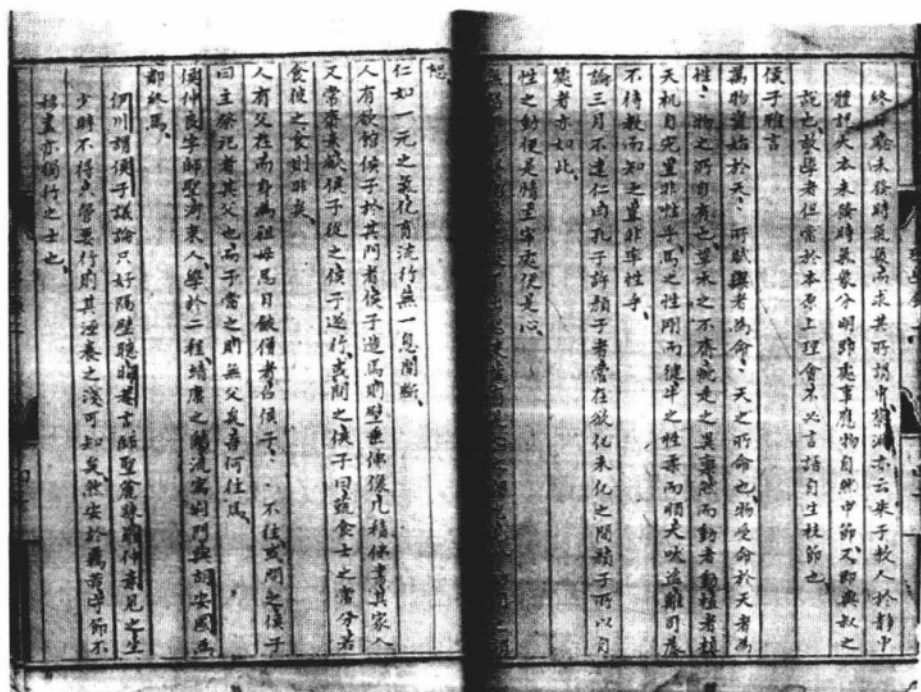 終日危坐未發時氣象而求其所謂中蔡淵亦云朱子教人於靜中
體認大本未發時氣象分明即處事應物自然中節又即與叔之
說也故學者但當於本原上理會不必言語自生枝節也
侯子雅言
萬物資始於天天所賦與者為命天之所命也物受命於天者為
性物之所自有也草木之不齊飛走之異稟然而動者動植者植
天机自完豈非性乎馬之性剛而健牛之性柔而順犬吠盜雞司晨
不待教而知之豈非率性乎
論三月不違仁曰孔子許顏子者常在欲化未化之間顏子所以自
處者亦如此
性之動便是情主宰處便是心
恕
仁如一元之氣化育流行無一息間斷
人有欲館侯子於其門者侯子造焉則壁垂佛像几積佛書其家人
又常齋素欲侯子從之侯子遂行或問之侯子曰蔬食士之常分若
食彼之食則非矣
人有父在而身為祖母忌日飯僧者召侯子侯子不往或問之侯子
曰主祭祀者其父也而子當之則無父矣吾何往焉
侯仲良字師聖河東人學於二程靖康之亂流寓荊門與胡安國為
鄰終焉
伊川謂侯子議論只好隔壁聽晦菴言師聖麄疎羅仲素見之坐
少時不得只管要行則其涵養之淺可知矣然安於羈苦守節不
移蓋亦獨行之士也